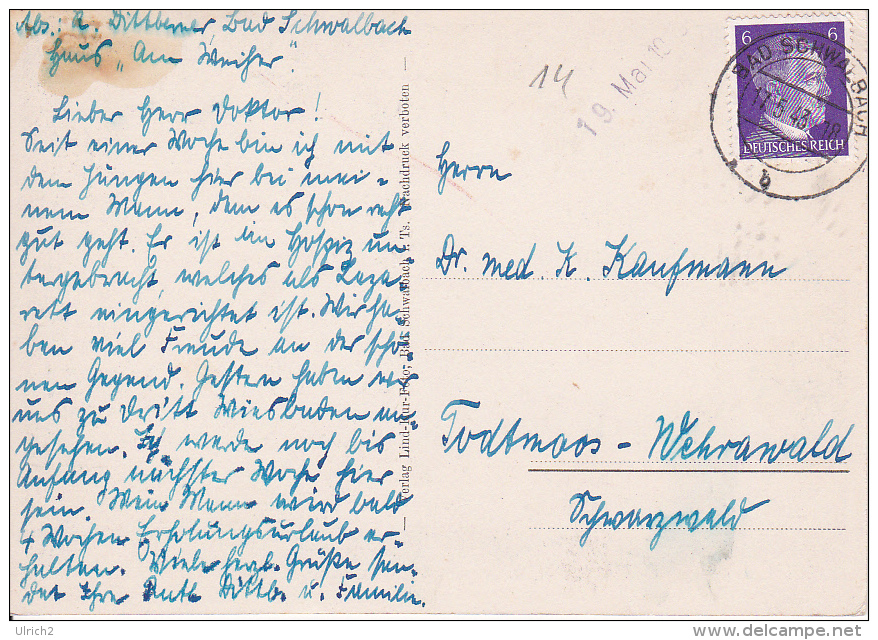 Abs.: R. Dittberner, Bad Schwalbach
Haus „Am Weiher".
Lieber Herr Doktor!
Seit einer Woche bin ich mit
dem Jungen hier bei mei-
nem Mann, dem es schon recht
gut geht. Er ist im Hospiz un-
tergebracht, welches als Laza-
rett eingerichtet ist. Wir ha-
ben viel Freude an der schö-
nen Gegend. Gestern haben wir
uns zu dritt Wiesbaden an-
gesehen. Ich werde noch bis
Anfang nächster Woche hier
sein. Mein Mann wird bald
4 Wochen Erholungsurlaub er-
halten. Viele herzl. Grüße sen-
det Ihre Dittb. u. Familie.
— Verlag Lind-Kur-Foto, Bad Schwalbach i. Ts. Nachdruck verboten —
14
19. Mai 19
6 6
DEUTSCHES REICH
BAD SCHWALBACH
17.5.43.18
b
Herrn
Dr. med. K. Kaufmann
Todtmoos - Wehrawald
Schwarzwald
Ulrich2
http://www.delcampe.net